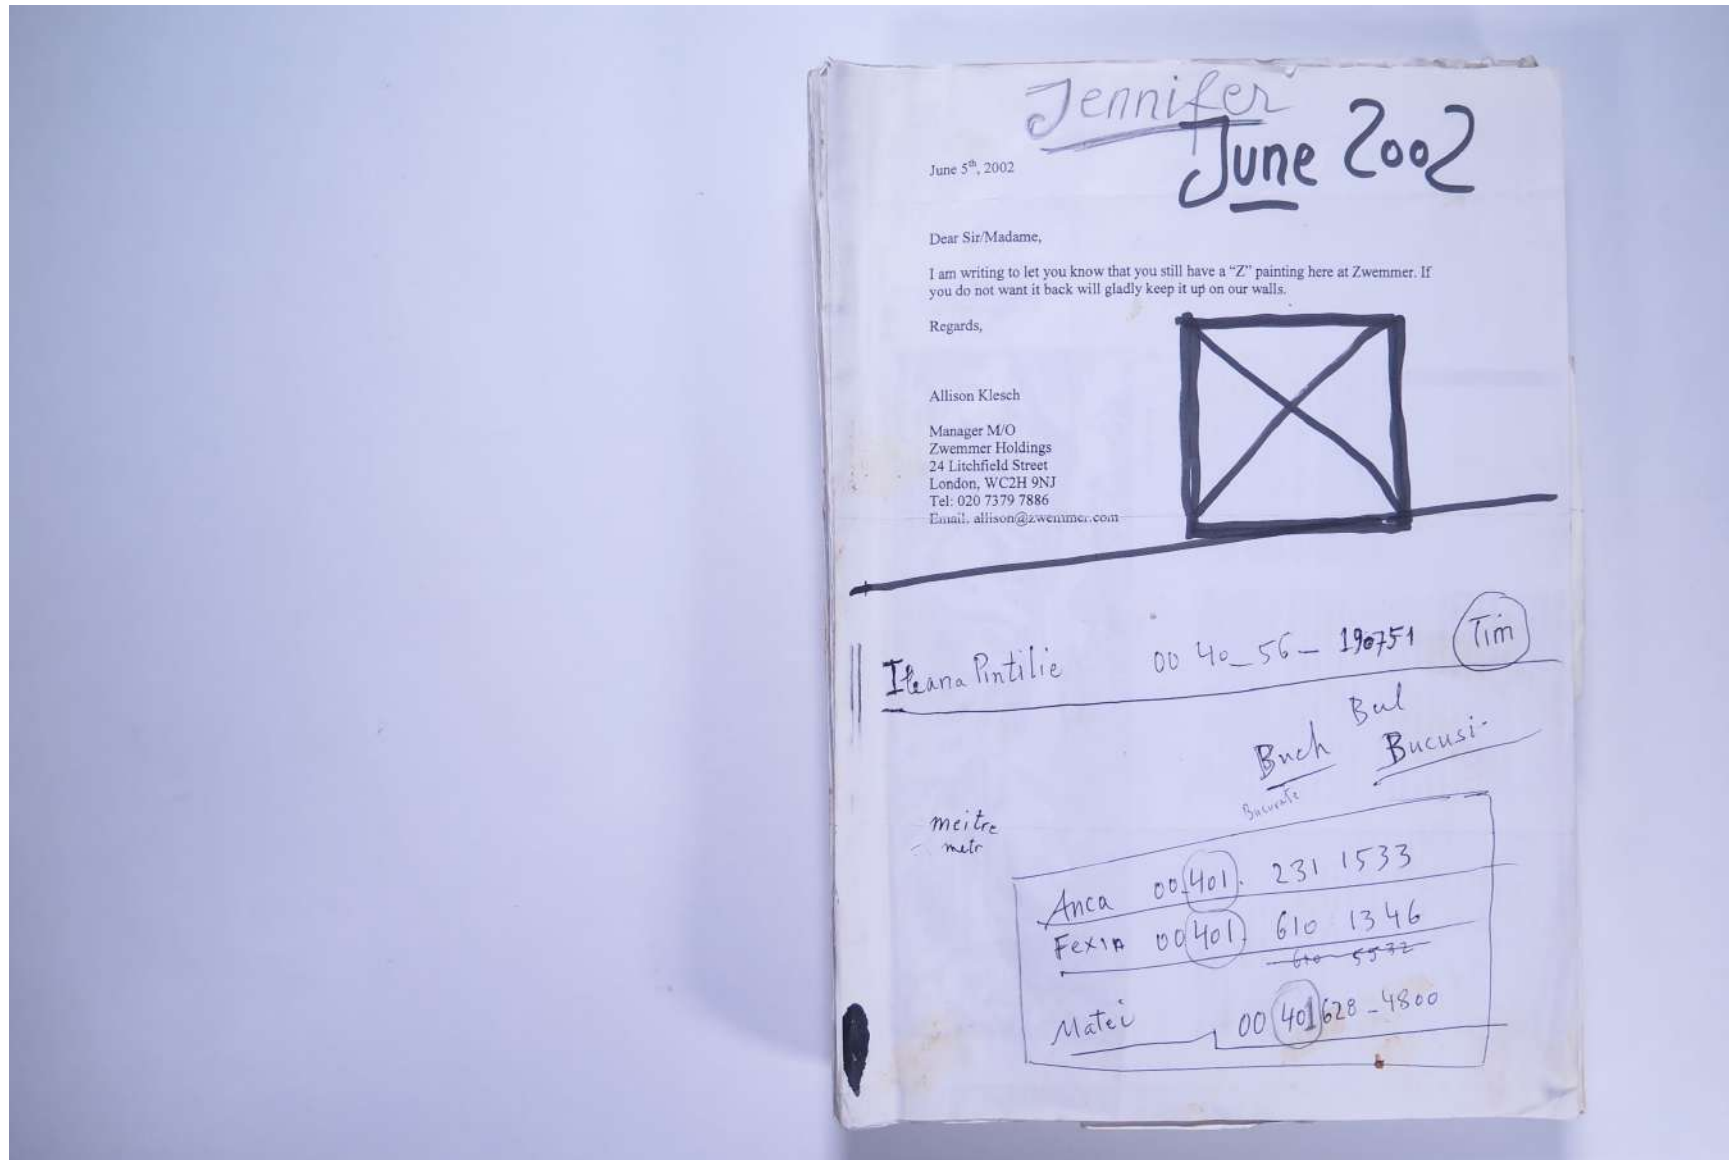 Jennifer
June 2002
June 5th, 2002
Dear Sir/Madame,
I am writing to let you know that you still have a “Z” painting here at Zwemmer. If
you do not want it back will gladly keep it up on our walls.
Regards,
Allison Klesch
Manager M/O
Zwemmer Holdings
24 Litchfield Street
London, WC2H 9NJ
Tel: 020 7379 7886
Email. allison@zwemmer.com
Ileana Pintilie 00 40_56_ 190751 Tim
Bul
Buch Bucusi
meitre
metr
Anca 00 401. 231 1533
Fexia 00 401 610 1346
610 5532
Matei 00 401 628_4800